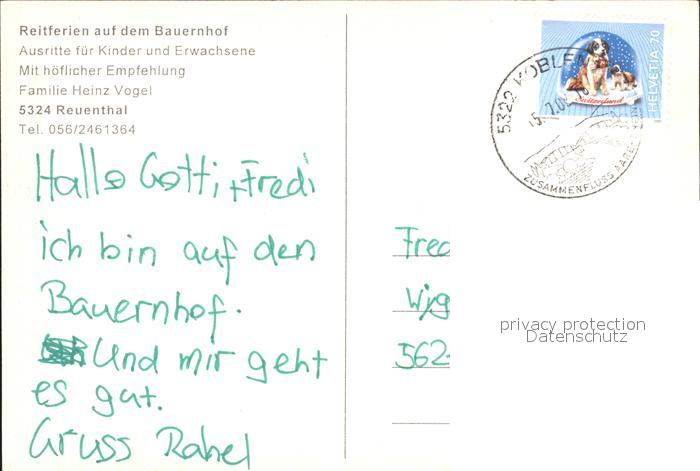 Reitferien auf dem Bauernhof
Ausritte für Kinder und Erwachsene
Mit höflicher Empfehlung
Familie Heinz Vogel
5324 Reuenthal
Tel. 056/2461364
Hallo Gotti + Fredi
ich bin auf den
Bauernhof.
Und mir geht
es gut.
Gruss Rahel
HELVETIA 70
Switzerland
5322 KOBLENZ
ZUSAMMENFLUSS AARE-RHEIN
Fred
Wyg
562
privacy protection
Datenschutz